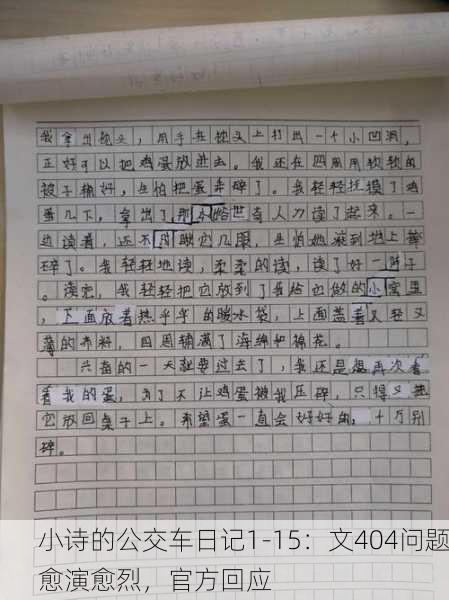 我拿出枕头，用手在枕头上打出一个小凹洞，
正好可以把鸡蛋放进去。我还在四周用软软的
被子铺好，生怕把蛋弄碎了。我轻轻抚摸了鸡
蛋几下，拿出了那本给世奇人刀读了起来。一
边读着，还不时瞅它几眼，生怕她滚到地上摔
碎了。我轻轻地读，柔柔的读，读了好一阵子
。读完，我轻轻把它放到了我给它做的小窝里
，下面放着热乎乎的暖水袋，上面盖着又轻又
薄的布料，四周铺满了海绵和棉花。
兴奋的一天就要过去了，我还是想再次看
看我的蛋，为了不让鸡蛋被我压碎，只得又把
它放回桌子上。希望蛋一直会好好的，千万别
碎。
小诗的公交车日记1-15：文404问题
愈演愈烈，官方回应